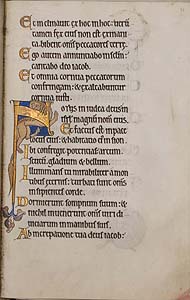 Et inclinauit ex hoc in hoc: ueru
tamen fex eius non est exinani
ta: bibent omnes peccatores terre.
Ego autem annunciabo in sclm:
cantabo deo iacob.
Et omnia cornua peccatorum
confringam: & exaltabuntur
cornua iusti.
Notus in iudea deus: in
isrl magnum nomen eius.
Et factus est in pace
locus eius: & habitatio ei in syon.
Ibi confregit potentias: arcum
scutum gladium & bellum.
Illuminans tu mirabiliter a mon
tibus eternis: turbati sunt omnes
insipientes corde.
Dormierunt somnum suum: &
nichil inuenerunt omnes uiri di
uitiarum in manibus suis.
Ab increpatione tua deus iacob: